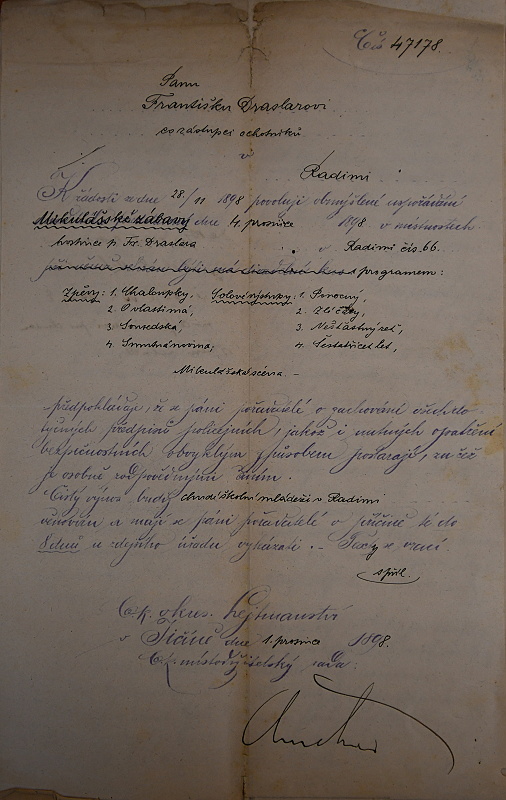 Čís 47178.
Panu
Františku Draslarovi
co zástupci ochotníků
v
Radimi
K žádosti ze dne 28/11 1898 povoluji obmýšlené uspořádání
Mikulášské zábavy dne 4. prosince 1898 v místnostech
hostince p. Fr. Draslara v Radimi čís. 66.
programem:
Zpěvy: 1. Chaloupky, Solové výstupy: 1. Pracný,
2. O vlastimá, 2.
3. Sousedská, 3. Nešťastný
4. 4. Šestatřicet let,
Mikulášská scéna. –
předpokládaje, že se páni pořadatelé o zachování všech do-
tyčných předpisů policejních, jakož i nutných opatření
bezpečnostních obvyklým způsobem postarají, za což
je osobně zodpovědnými činím.
Čistý výnos budiž chudé školní mládeži v Radimi
věnován a mají se páni pořadatelé o příčině té do
8 dnů u zdejšího úřadu vykázati. – Texty se vrací
C. k. okres. hejtmanství
v Jičíně dne 1. prosince 1898.
C. k. místodržitelský rada: